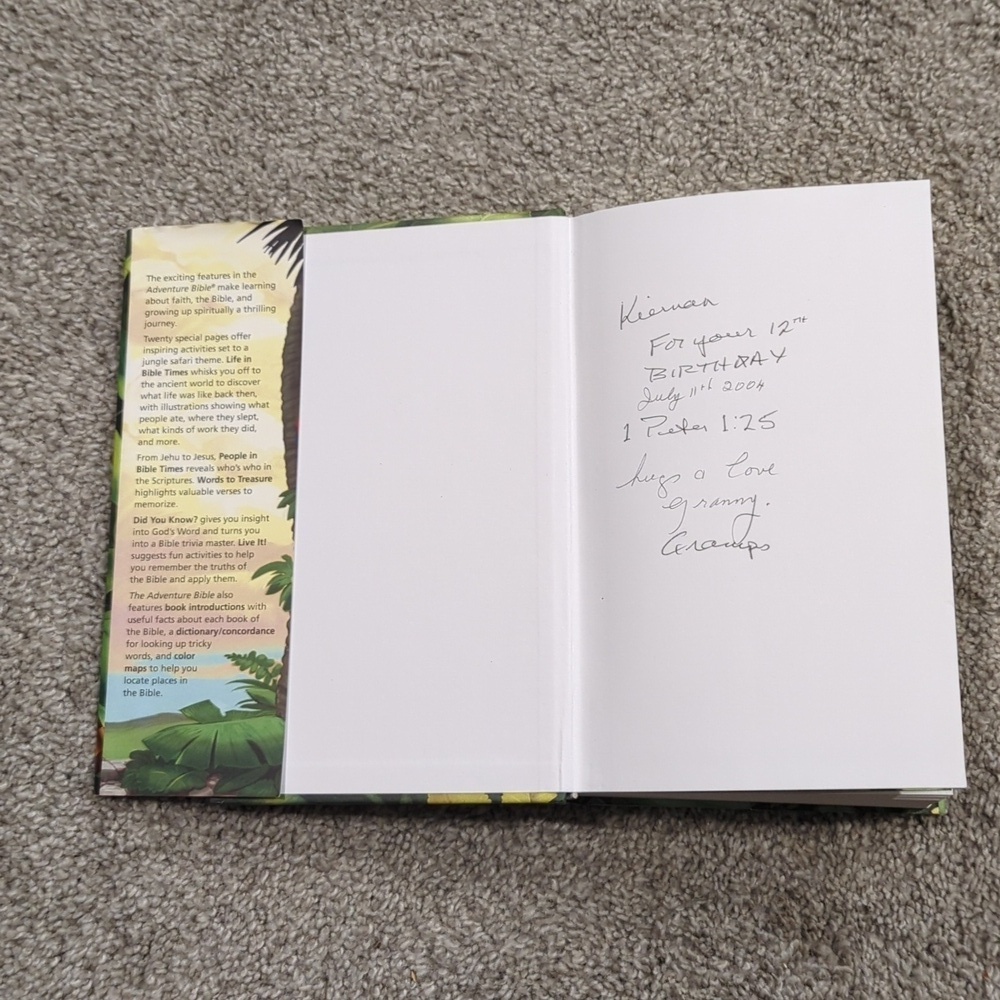 The exciting features in the
Adventure Bible® make learning
about faith, the Bible, and
growing up spiritually a thrilling
journey.
Twenty special pages offer
inspiring activities set to a
jungle safari theme. Life in
Bible Times whisks you off to
the ancient world to discover
what life was like back then,
with illustrations showing what
people ate, where they slept,
what kinds of work they did,
and more.
From Jehu to Jesus, People in
Bible Times reveals who's who in
the Scriptures. Words to Treasure
highlights valuable verses to
memorize.
Did You Know? gives you insight
into God's Word and turns you
into a Bible trivia master. Live It!
suggests fun activities to help
you remember the truths of
the Bible and apply them.
The Adventure Bible also
features book introductions with
useful facts about each book of
the Bible, a dictionary/concordance
for looking up tricky
words, and color
maps to help you
locate places in
the Bible.
Kiernan
For your 12TH
BIRTHDAY
July 11th 2004
1 Peter 1:25
hugs a love
granny.
Gramps